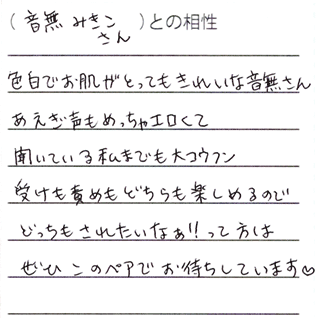 (音無 みきこ さん)との相性
色白でお肌がとってもきれいな音無さん
あえぎ声もめっちゃエロくて
聞いている私までも大コウフン
受けも責めもどちらも楽しめるので
どっちもされたいなぁ!!って方は
ぜひこのペアでお待ちしています♡